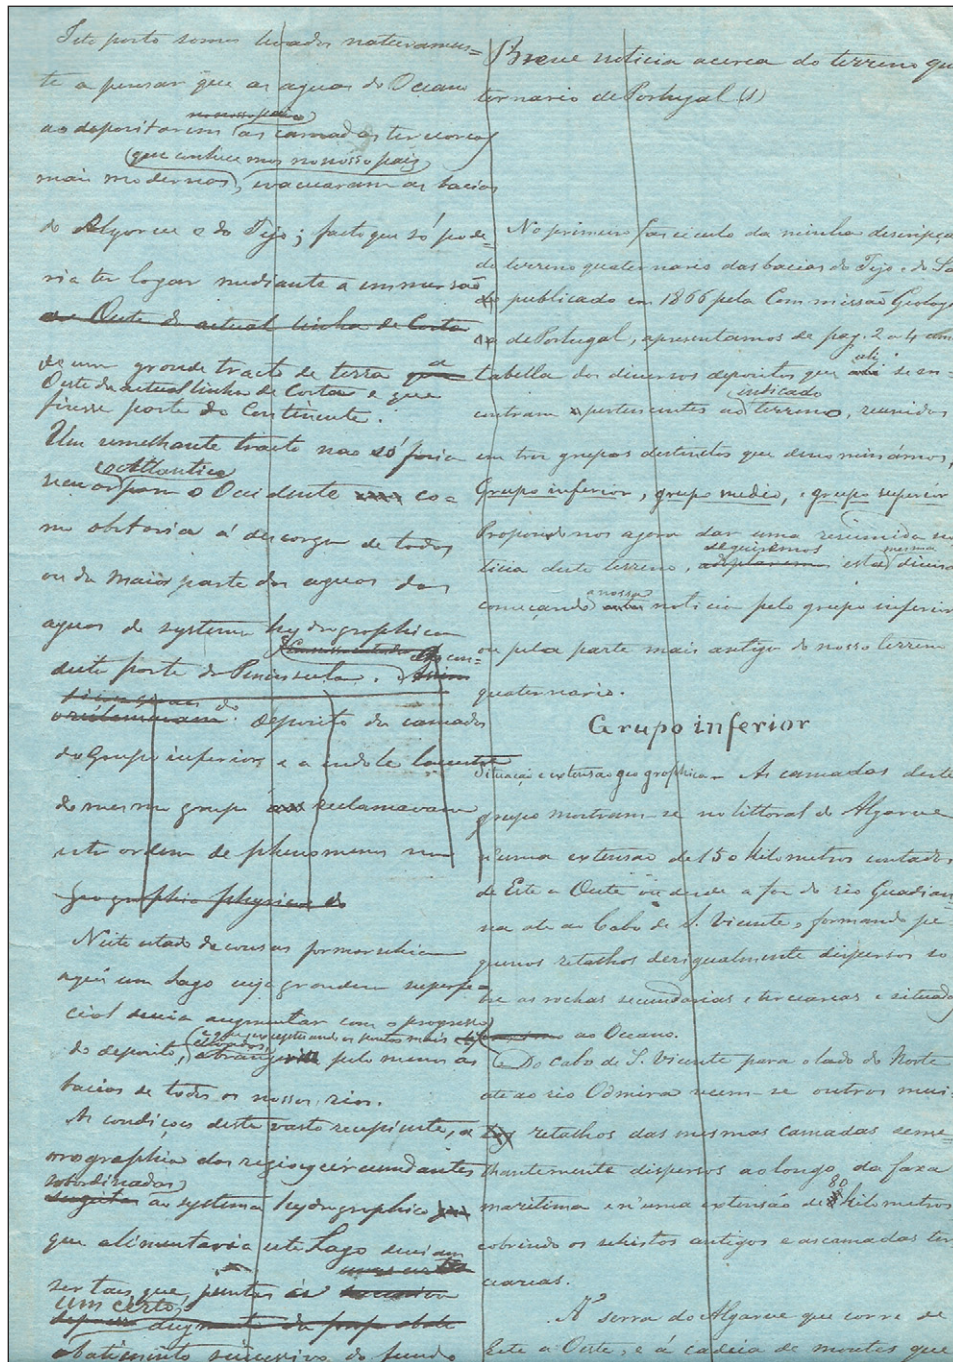 Isto posto somos levados naturalmen=
te a pensar que as aguas do Oceano
no nosso paiz
ao depositarem as camadas terciareas
que conhecemos no nosso pais
mais modernas, evacuaram as bacias
do Algarve e do Tejo; facto que só pode=
ria ter logar mediante a immersão
ao Oeste da actual linha de Costa
de um grande tracto de terra a
Oeste da actual linha de Costa e que
fizesse parte do Continente.
Um semelhante tracto nao só faria
o Atlantico
para o Occidente co=
mo obstaria á descarga de todas
ou da maior parte das aguas das
aguas do systema hydrographico
desta parte da Peninsula.
deposito das camadas
do Grupo inferior e a indole lacustre
do mesmo grupo reclamavam
esta ordem de phenomenos na
geographia physica do
Neste estado de cousas formar-se-hia
aqui um Lago cuja grandeza superfi=
cial devia augmentar com o progresso
e que exceptuando os pontos mais
elevados,
do deposito, pelo menos as
bacias de todos os nossos rios.
As condições deste vasto recipiente, a
orographia das regioes circumdantes
subordinadas
ao systema hydrographico
que alimentaria este Lago deviam
ser taes que, juntas
um certo
abatimento successivo do fundo
Breve noticia acerca do terreno qua
ternario de Portugal (1)
No primeiro fasciculo da minha descripça
do terreno quaternario das bacias do Tejo e do Sa
do publicado em 1866 pela Commissão Geolog
de Portugal, apresentamos de pag. 2 a 4 uma
ali
tabella dos diversos depositos que se en=
indicado
contram pertencentes ao terreno, reunidos
em tres grupos distinctos que denominámos,
Grupo inferior, grupo medio, e grupo superior
Propondo nos agora dar uma resumida no
seguiremos mesma
ticia deste terreno, esta divisa
a nossa
começando noticia pelo grupo inferior
ou pela parte mais antiga do nosso terreno
quaternario.
Grupo inferior
Situação e extensao geographica – As camadas deste
grupo mostram-se no littoral do Algarve
n'uma extensao de 150 kilometros contados
de Este a Oeste ou desde a foz do rio Guadia=
na até ao Cabo de S. Vicente, formando pe=
quenos retalhos desigualmente dispersos so
bre as rochas secundarias e terciareas e situado
ao Oceano.
Do cabo de S. Vicente para o lado do Norte
ate ao rio Odmira veem-se outros mui=
tos retalhos das mesmas camadas seme=
lhantemente dispersos ao longo da faxa
80
maritima n'uma extensão de kilometros
cobrindo os schistos antigos e as camadas ter
ciarias.
A serra do Algarve que corre de
Este a Oeste, e á cadeia de montes que